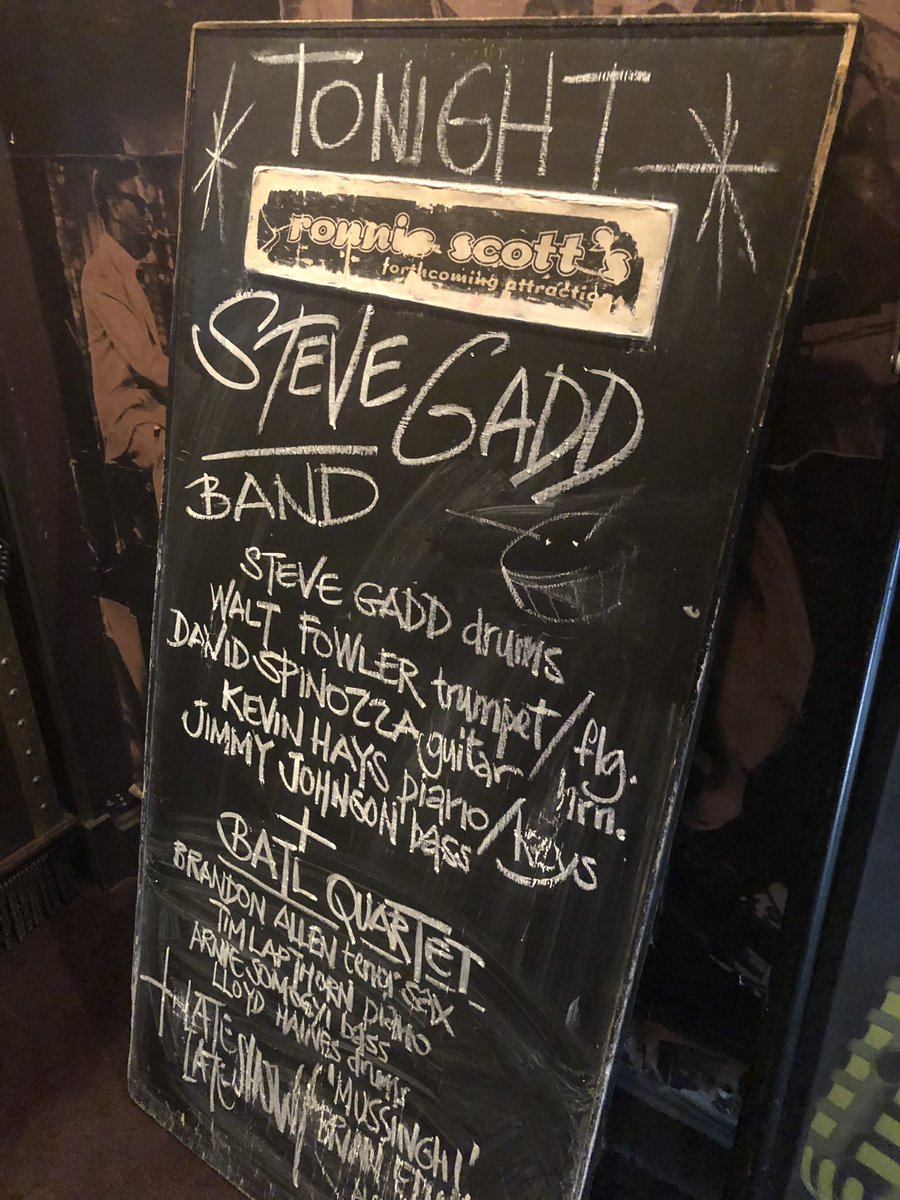 TONIGHT
ronnie scott's
forthcoming attractions
STEVE GADD
BAND
STEVE GADD drums
WALT FOWLER trumpet/flg. hrn.
DAVID SPINOZZA guitar
KEVIN HAYS piano/keys
JIMMY JOHNSON bass
+
BATL QUARTET
BRANDON ALLEN tenor sax
TIM LAPTHORN piano
ARNIE SOMOGYI bass
LLOYD HAINES drums
+ LATE
LATE SHOW "MUSSINGHI"
BRIAN